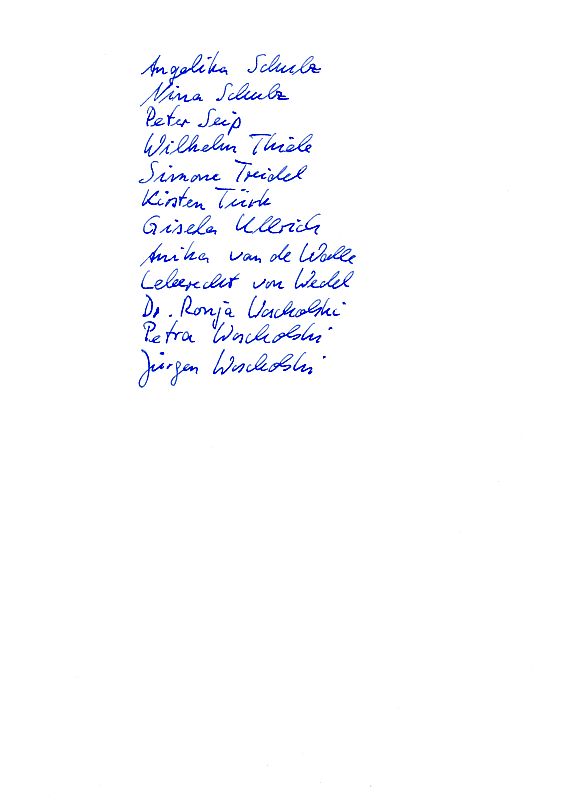 Angelika Schulz
Nina Schulz
Peter Seip
Wilhelm Thiele
Simone Treidel
Kirsten Türk
Gisela Ullrich
Anika van de Walle
Leberecht von Wedel
Dr. Ronja Woscholski
Petra Woscholski
Jürgen Woscholski